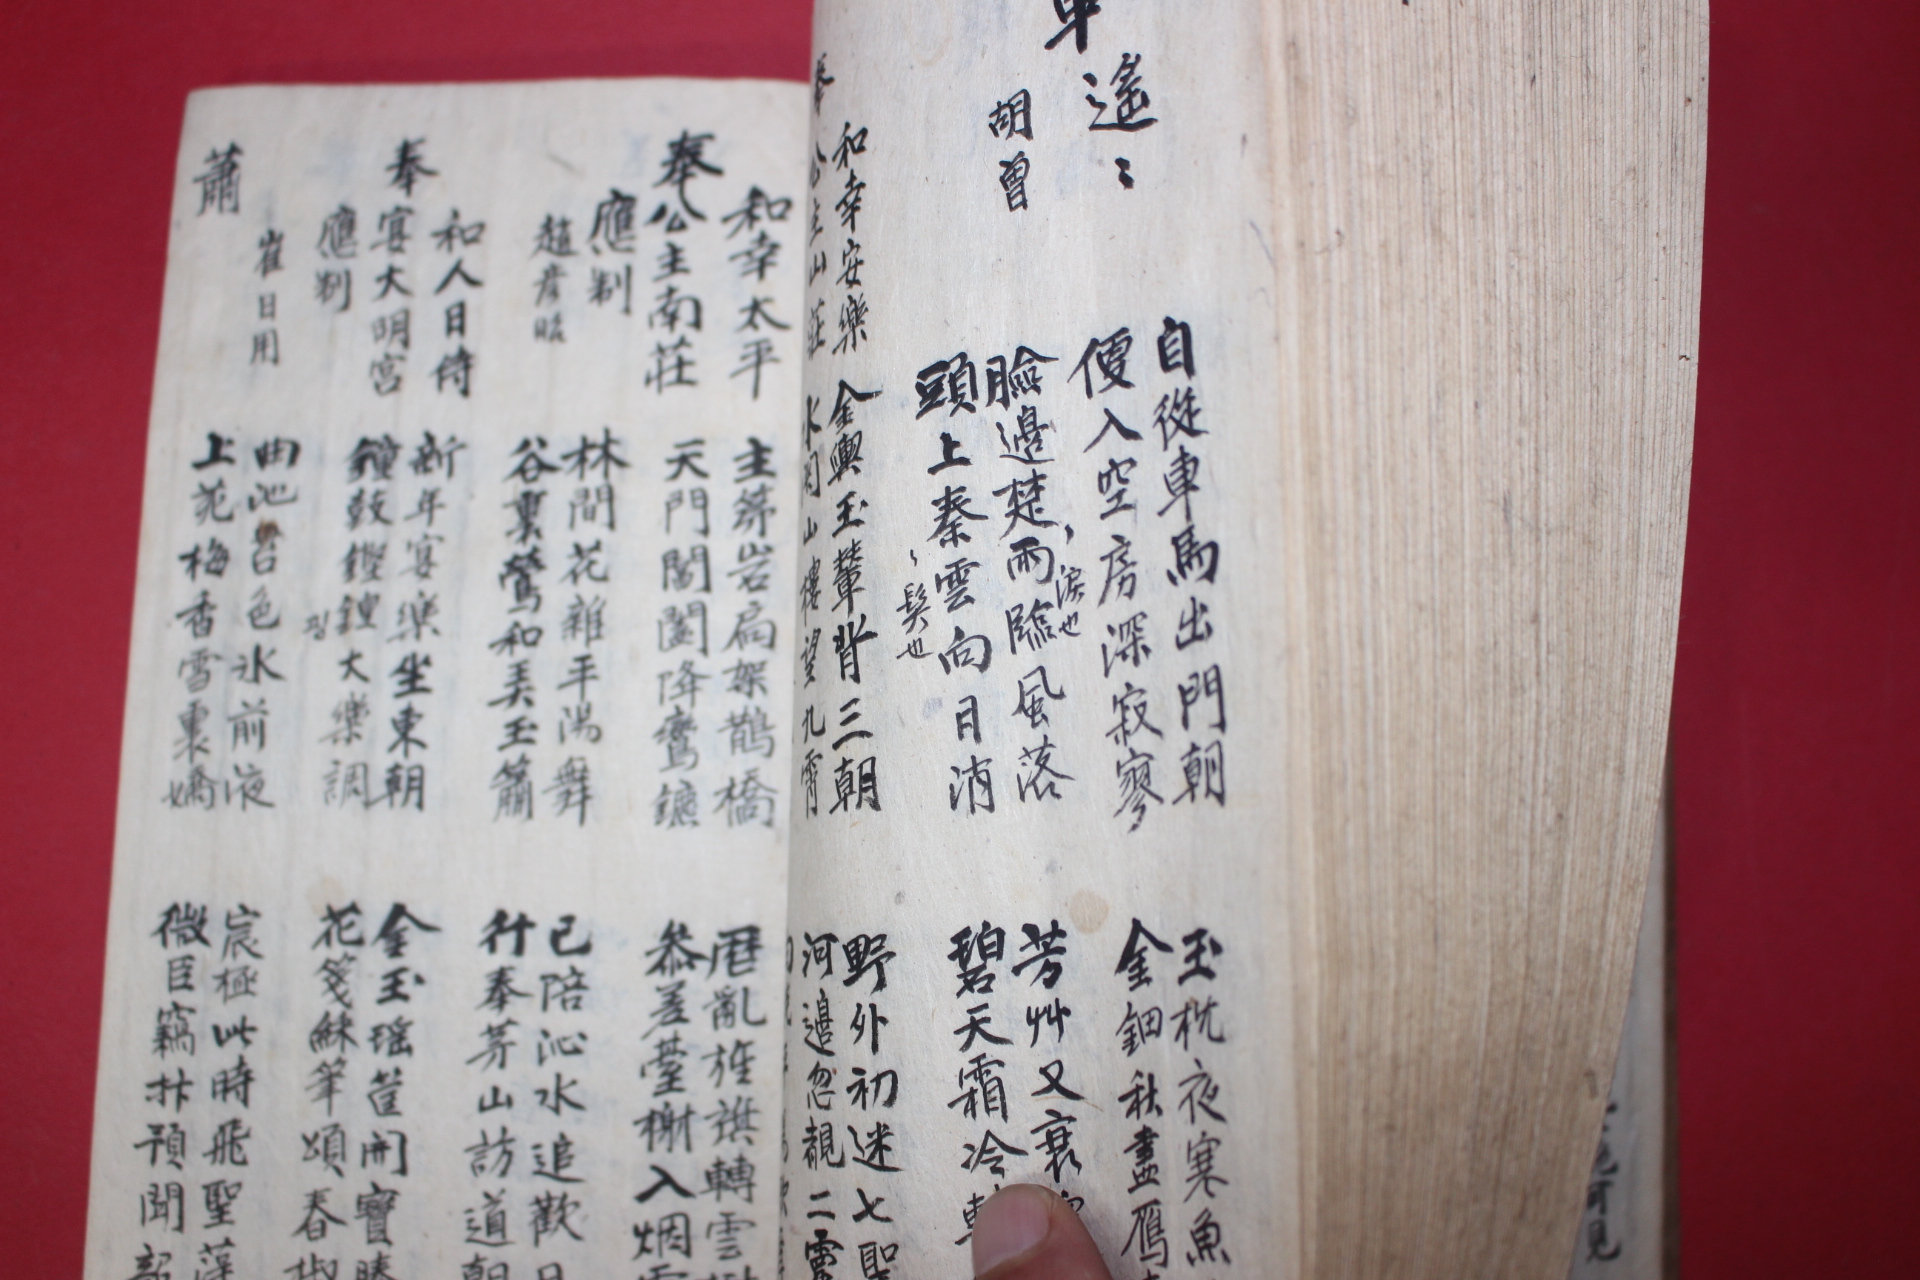 車遙〻
胡曾
自從車馬出門朝
便入空房深寂寥
臉邊楚雨臨風落
淚也
頭上秦雲向日消
髮也
玉枕夜寒魚
金鈿秋盡鴈
芳艸又衰
碧天霜冷
和幸安樂
奉公主山莊
金輿玉輦背三朝
水閣山樓望九霄
野外初迷七聖
河邊忽覩二靈
和幸太平
奉公主南莊
應制
趙彦昭
主第岩扃架鵲橋
天門閶闔降鸞鑣
曆亂旌旗轉雲
叅差臺榭入烟
林間花雜平陽舞
谷裏鶯和弄玉簫
已陪沁水追歡日
行奉茅山訪道朝
和人日侍
奉宴大明宮
應制
崔日用
新年宴樂坐東朝
鐘鼓鏗鍠大樂調
金玉瑤筐開寶勝
花箋穌筆頌春椒
曲池苔色氷前液
上苑梅香雪裏嬌
宸極此時飛聖藻
微臣竊抃預聞韶
蕭